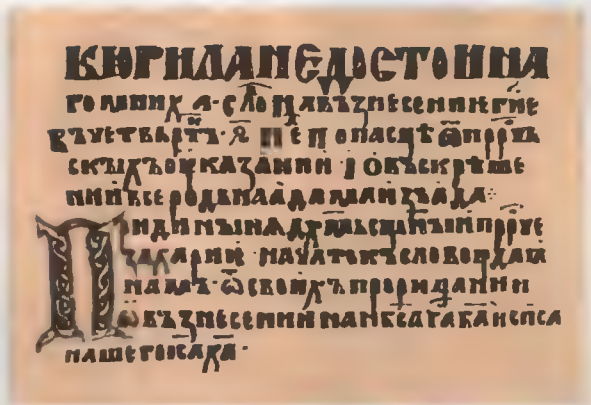 КЮРИЛА НЕДОСТОИНА
ГО МНИХА · СЛО НА ВЪЗНЕСЕНИЕ ГНЕ
ВЪ ЧЕТВЬРТ НЕ ПО ПАСЦѢ Ѿ ПРОРЧЬ
СКЫХЪ ОУКАЗАНИИ · I О ВЪСКРѢШЕ
НИИ ВСЕРОДЬНА АДАМА ИЗЪ АДА
ПРИДИ НЫНѦ ДХЪМЬ СЩНЫИ ПРРЧЕ
ЗАХАРИЕ · НАЧАТОКЪ СЛОВОУ ДАꙖ
НАМЪ · Ѿ СВОИХЪ ПРОРИЦАНИИ
Ѡ ВЪЗНЕСЕНИИ НА НБСА ГА БА И СПСА
НАШЕГО ИСА ХА ·